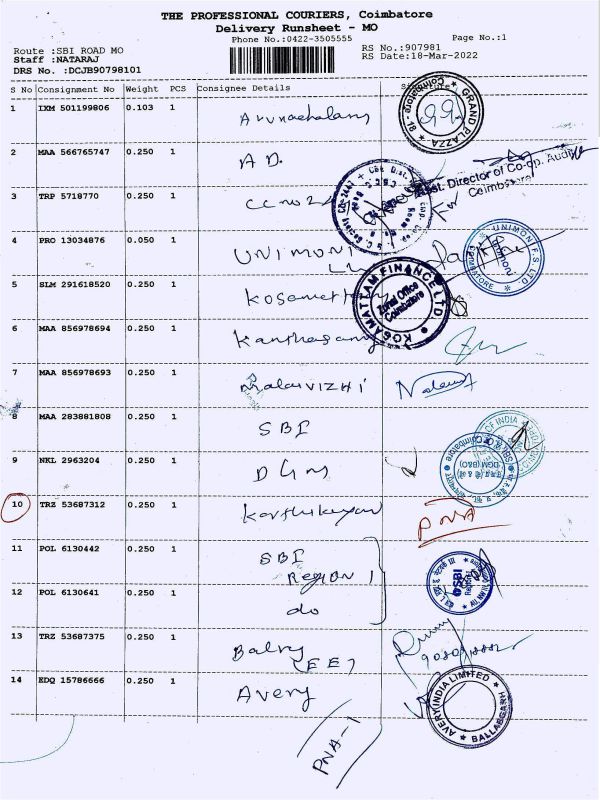 THE PROFESSIONAL COURIERS, Coimbatore
Delivery Runsheet - MO
Phone No.:0422-3505555
Page No.:1
Route :SBI ROAD MO
RS No.:907981
Staff :NATARAJ
RS Date:18-Mar-2022
DRS No. :DCJB90798101
S No Consignment No Weight PCS Consignee Details
1 IXM 501199806 0.103 1 Arunachalam
GRAND PLAZZA
2 MAA 566765747 0.250 1 A D.
Asst. Director of Co-op. Audit
Coimbatore
3 TRP 5718770 0.250 1 CC no 2
4 PRO 13034876 0.050 1 UNIMONI
UNIMONI F.S. LTD.
COIMBATORE
5 SLM 291618520 0.250 1
KOSAMATTAM FINANCE LTD.
Zonal Office
Coimbatore
6 MAA 856978694 0.250 1
7 MAA 856978693 0.250 1 Malarvizhi
8 MAA 283881808 0.250 1 SBI
9 NKL 2963204 0.250 1 DGM
DGM (B&O)
10 TRZ 53687312 0.250 1 Karthikeyan PNA
11 POL 6130442 0.250 1 SBI
REGION 1
12 POL 6130641 0.250 1 do
13 TRZ 53687375 0.250 1
(EE)
14 EDQ 15786666 0.250 1 Avery
AVERY INDIA LIMITED
BALLABGARH
PNA-1